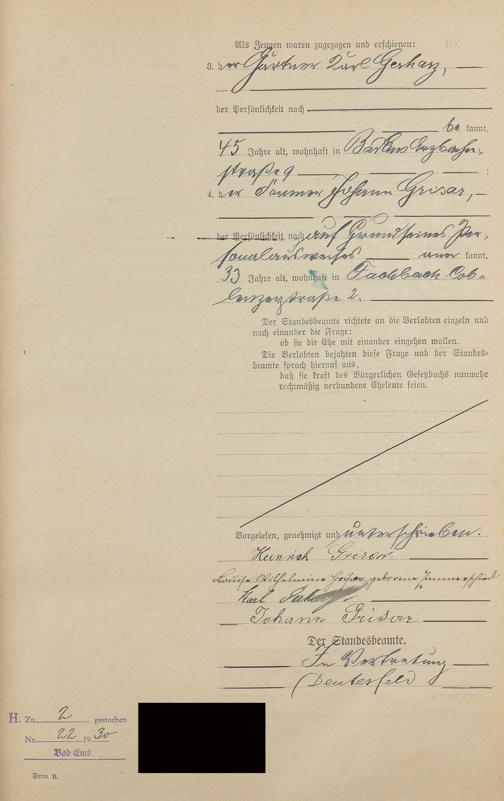 Als Zeugen waren zugezogen und erschienen:
3. der Gärtner Karl Gerharz,
der Persönlichkeit nach
be kannt,
45 Jahre alt, wohnhaft in
straße 9 ;
4. der Former Johann Grisar,
der Persönlichkeit nach auf Grund seines Per-
sonalausweises aner kannt,
33 Jahre alt, wohnhaft in Fachbach Cob-
lenzerstraße 2.
Der Standesbeamte richtete an die Verlobten einzeln und
nach einander die Frage:
ob sie die Ehe mit einander eingehen wollen.
Die Verlobten bejahten diese Frage und der Standes-
beamte sprach hierauf aus,
daß sie kraft des Bürgerlichen Gesetzbuchs nunmehr
rechtmäßig verbundene Eheleute seien.
Vorgelesen, genehmigt und unterschrieben.
Heinrich Grisar
Louise Wilhelmine Grisar geborene
Karl
Johann Grisar
Der Standesbeamte.
In Vertretung
H. Zu 2 gestorben
Nr. 22 1930
Bad Ems
Form. H.